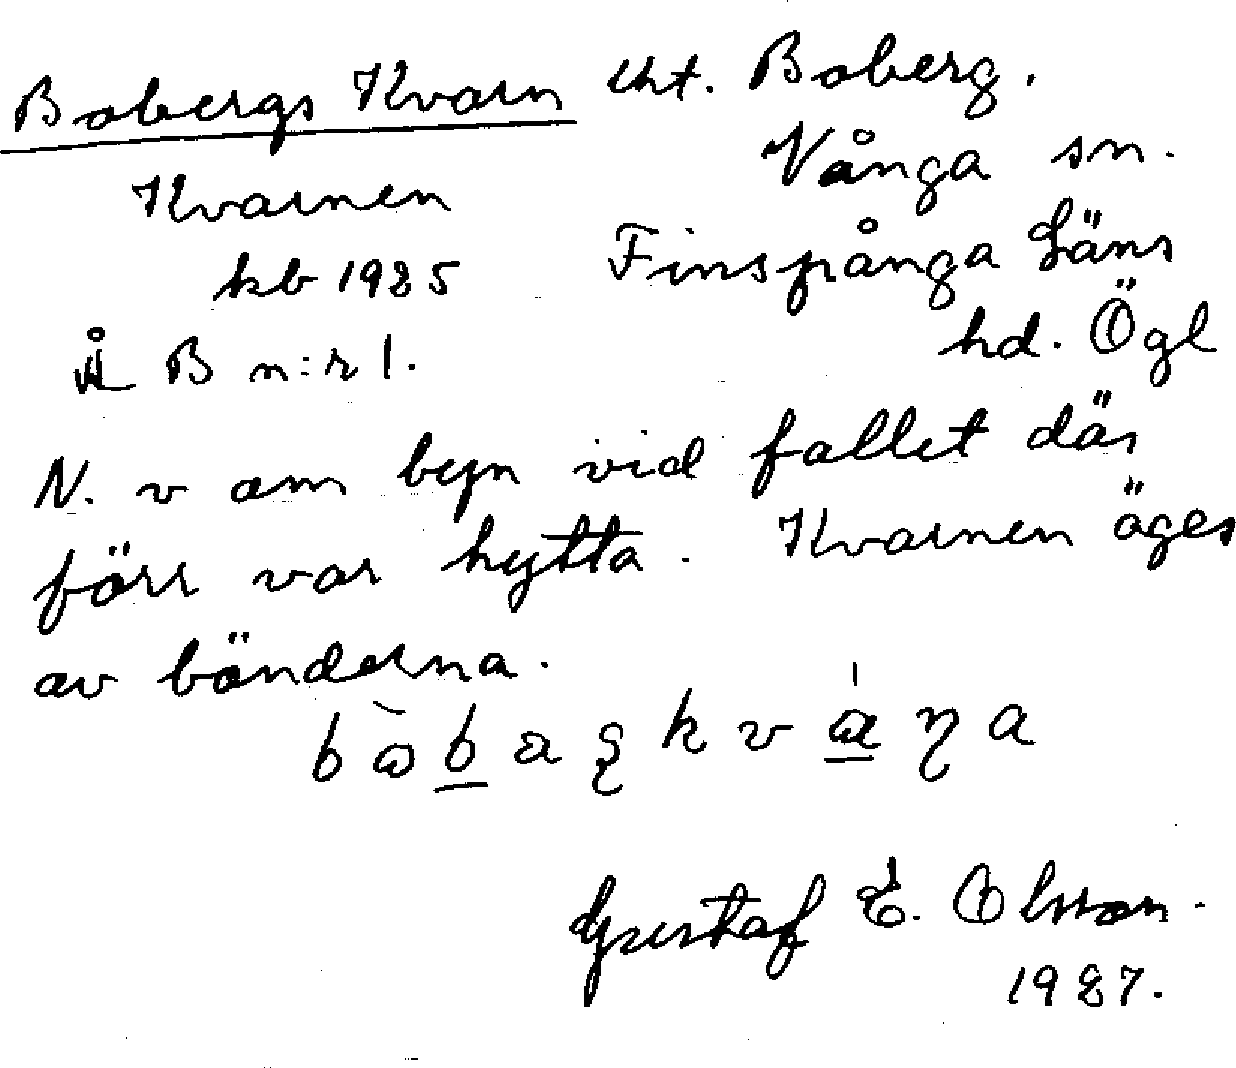 Bobergs Kvarn cht. Boberg.
Vånga sn.
Kvarnen
kb 1925 Finspånga Läns
hd. Ögl
B n:r 1.
N. v om byn vid fallet där
förr var hytta. Kvarnen äges
av bönderna.
Gustaf E. Olsson.
1927.